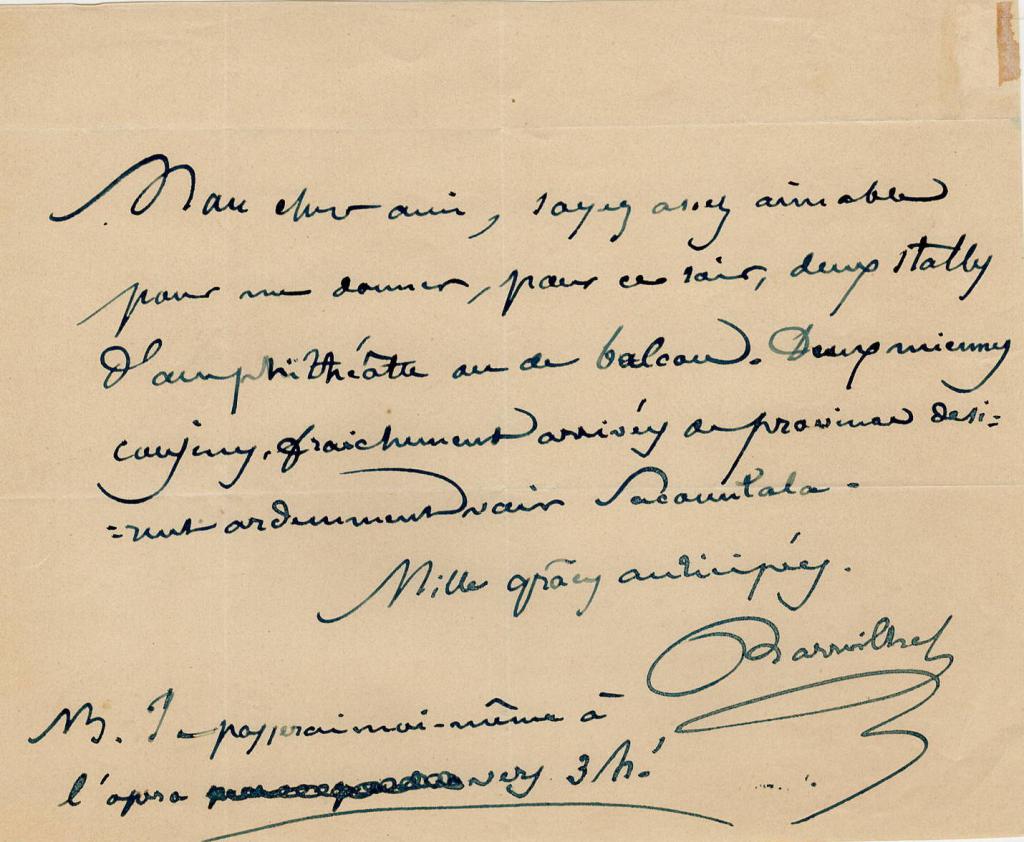 Mon cher ami, soyez assez aimable
pour me donner, pour ce soir, deux stalles
d'amphithéâtre ou de balcon. Deux miennes
cousines, fraichement arrivées de province dési=
=rent ardemment voir Sacountala.
Mille grâces anticipées.
Barroilhet
NB. Je passerai moi-même à
l'opéra vers 3 h.